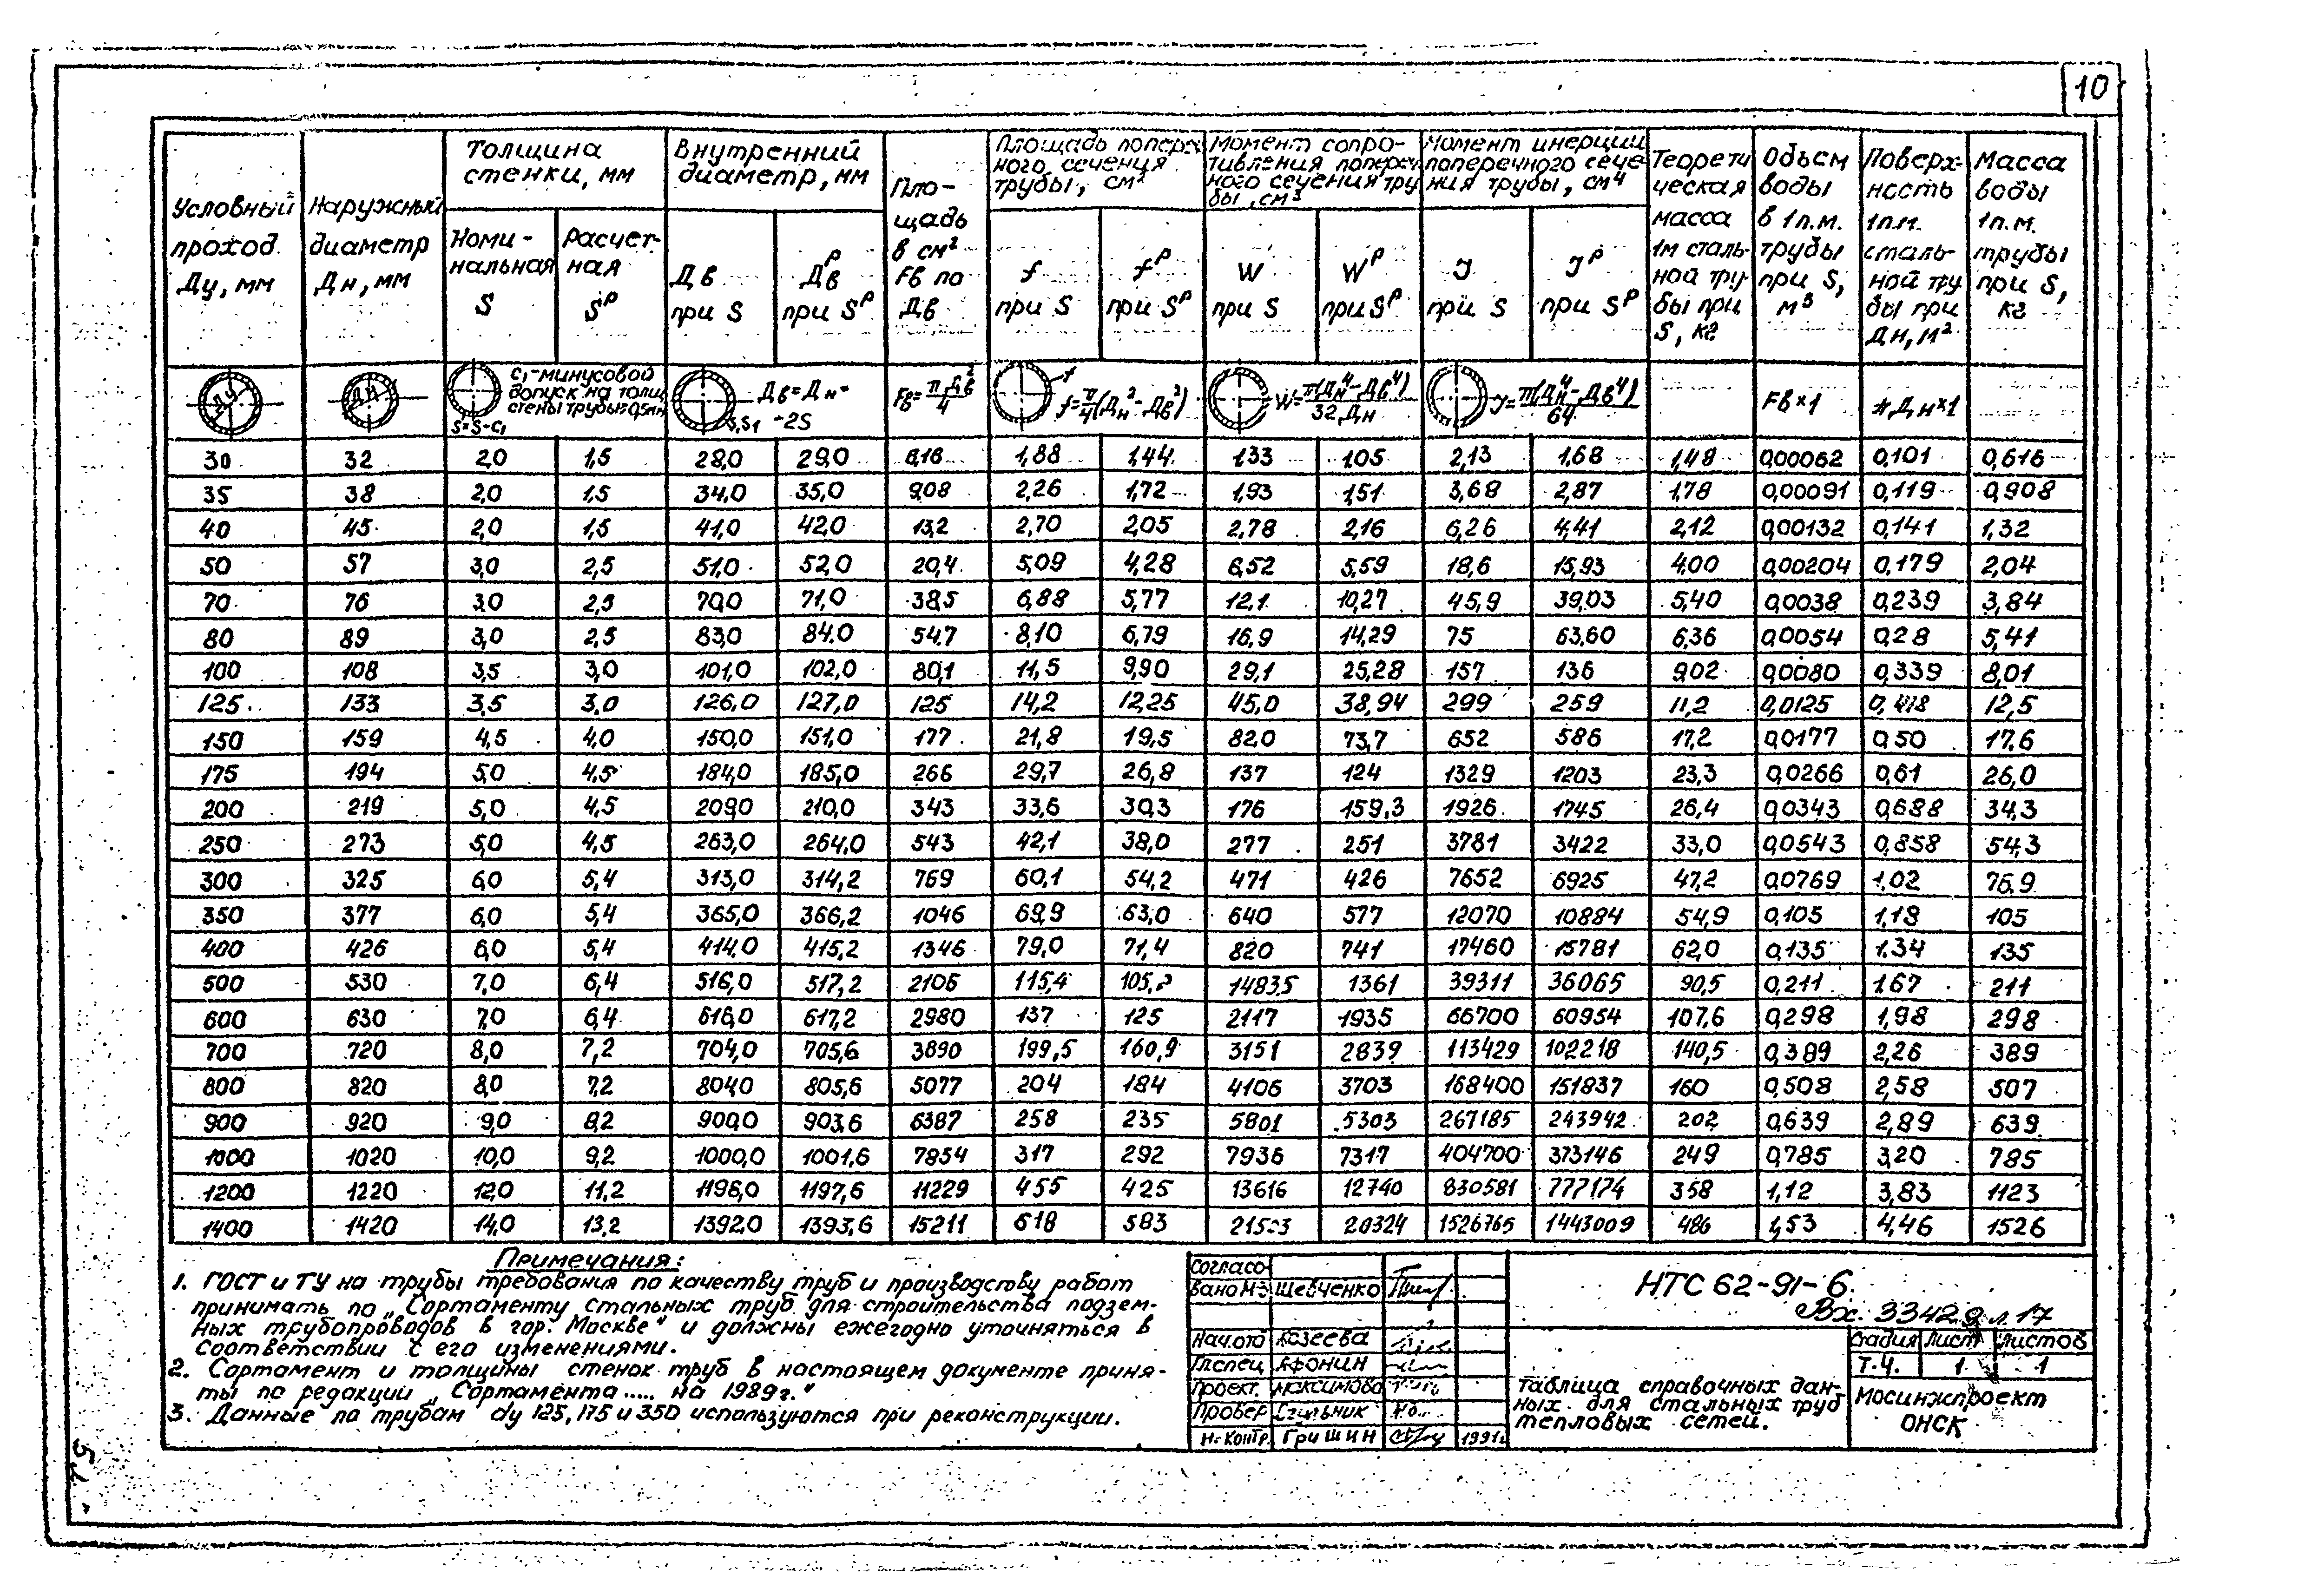 10
Условный проход Ду, мм
Наружный диаметр Дн, мм
Толщина стенки, мм
Номинальная S
Расчетная Sᵖ
Внутренний диаметр, мм
Дв при S
Двᵖ при Sᵖ
Площадь в см² Fв по Дв
Площадь попереч ного сечения трубы, см²
f при S
fᵖ при Sᵖ
Момент сопро-тивления попереч ного сечения тру бы, см³
W при S
Wᵖ при Sᵖ
Момент инерции поперечного сече-ния трубы, см⁴
J при S
Jᵖ при Sᵖ
Теорети ческая масса 1м сталь-ной тру бы при S, кг
Объем воды в 1п.м. трубы при S, м³
Поверх-ность 1п.м. сталь-ной тру бы при Дн, м²
Масса воды 1п.м. трубы при S, кг
Ду
Дн
С₁-минусовой допуск на толщ стены трубы=0,5мм
Sᵖ=S-С₁
Дв=Дн-2S
S,S₁
Fв=πДв²/4
f
f=π/4(Дн²-Дв²)
W=π(Дн⁴-Дв⁴)/32Дн
J=π(Дн⁴-Дв⁴)/64
Fв×1
π Дн×1
30 32 2,0 1,5 28,0 29,0 6,16 1,88 1,44 1,33 1,05 2,13 1,68 1,48 0,00062 0,101 0,616
35 38 2,0 1,5 34,0 35,0 9,08 2,26 1,72 1,93 1,51 3,68 2,87 1,78 0,00091 0,119 0,908
40 45 2,0 1,5 41,0 42,0 13,2 2,70 2,05 2,78 2,16 6,26 4,41 2,12 0,00132 0,141 1,32
50 57 3,0 2,5 51,0 52,0 20,4 5,09 4,28 6,52 5,59 18,6 15,93 4,00 0,00204 0,179 2,04
70 76 3,0 2,5 70,0 71,0 38,5 6,88 5,77 12,1 10,27 45,9 39,03 5,40 0,0038 0,239 3,84
80 89 3,0 2,5 83,0 84,0 54,7 8,10 6,79 16,9 14,29 75 63,60 6,36 0,0054 0,28 5,41
100 108 3,5 3,0 101,0 102,0 80,1 11,5 9,90 29,1 25,28 157 136 9,02 0,0080 0,339 8,01
125 133 3,5 3,0 126,0 127,0 125 14,2 12,25 45,0 38,94 299 259 11,2 0,0125 0,418 12,5
150 159 4,5 4,0 150,0 151,0 177 21,8 19,5 82,0 73,7 652 586 17,2 0,0177 0,50 17,6
175 194 5,0 4,5 184,0 185,0 266 29,7 26,8 137 124 1329 1203 23,3 0,0266 0,61 26,0
200 219 5,0 4,5 209,0 210,0 343 33,6 30,3 176 159,3 1926 1745 26,4 0,0343 0,688 34,3
250 273 5,0 4,5 263,0 264,0 543 42,1 38,0 277 251 3781 3422 33,0 0,0543 0,858 54,3
300 325 6,0 5,4 313,0 314,2 769 60,1 54,2 471 426 7652 6925 47,2 0,0769 1,02 76,9
350 377 6,0 5,4 365,0 366,2 1046 69,9 63,0 640 577 12070 10884 54,9 0,105 1,18 105
400 426 6,0 5,4 414,0 415,2 1346 79,0 71,4 820 741 17460 15781 62,0 0,135 1.34 135
500 530 7,0 6,4 516,0 517,2 2106 115,4 105,2 1483,5 1361 39311 36065 90,5 0,211 1,67 211
600 630 7,0 6,4 616,0 617,2 2980 137 125 2117 1935 66700 60954 107,6 0,298 1,98 298
700 720 8,0 7,2 704,0 705,6 3890 199,5 160,9 3151 2839 113429 102218 140,5 0,389 2,26 389
800 820 8,0 7,2 804,0 805,6 5077 204 184 4106 3703 168400 151837 160 0,508 2,58 507
900 920 9,0 8,2 900,0 903,6 6387 258 235 5801 5303 267185 243942 202 0,639 2,89 639
1000 1020 10,0 9,2 1000,0 1001,6 7854 317 292 7936 7317 404700 373146 249 0,785 3,20 785
1200 1220 12,0 11,2 1196,0 1197,6 11229 455 425 13616 12740 830581 777174 358 1,12 3,83 1123
1400 1420 14,0 13,2 1392,0 1393,6 15211 618 583 20324 1526765 1443009 486 1,53 4,46 1526
Примечания:
1. ГОСТ и ТУ на трубы требования по качеству труб и производству работ
принимать по „Сортаменту стальных труб для строительства подзем-
ных трубопроводов в гор. Москве" и должны ежегодно уточняться в
соответствии с его изменениями.
2. Сортамент и толщины стенок труб в настоящем документе приня-
ты по редакции „Сортамента..... на 1989г."
3. Данные по трубам dу 125, 175 и 350 используются при реконструкции.
Согласо-
вано М-3 Шевченко
Нач.ота Козеева
Гл.спец Афонин
Проект. Максимова
Провер
Н. контр. Гришин 1991г
НТС 62-91-6.
Вх. 3342 л. 17
Таблица справочных дан-
ных для стальных труб
тепловых сетей.
Стадия Лист Листов
Т.Ч. 1 1
Мосинжпроект
ОНСК
51